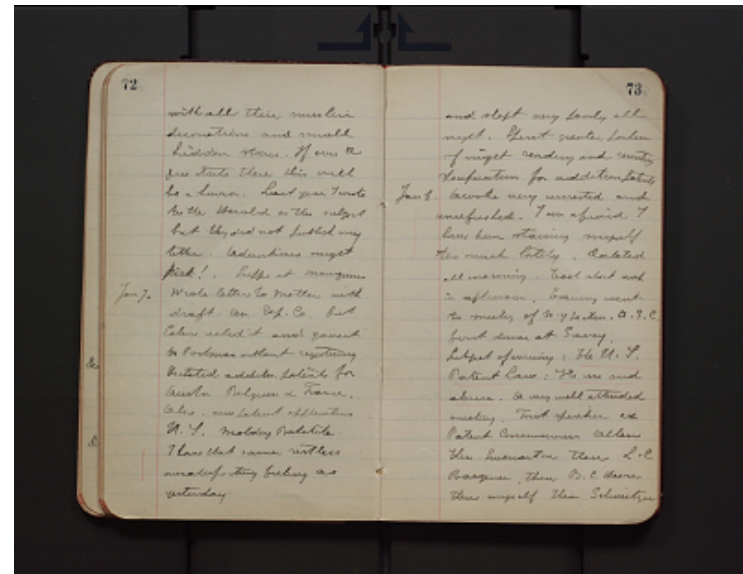 72
with all their
decorations and small
hidden stores. If ever a
fire starts there this will
be a Last year I wrote
to the Herald on the subject
but they did not publish my
letter. Advertisers might
kick!. at
Jan 7. Wrote letter to mother with
draft. Am. Exp. Co. but
Celine and gave it
to Postman without registering
Dictated addition patents for
Austria Belgium & France.
Also. new patent application
U. S. Molding Bakelite.
I have that same restless
feeling as
yesterday.
73.
and slept very poorly all
night. Spent greater portion
of night reading and writing
for addition patents
Jan 8. Awoke very unrested and
unrefreshed. I am afraid I
have been straining myself
too much lately. Dictated
all morning. Took short nap
in afternoon. Evening went
to meeting of N. Y. Section. A. I. C.
first dinner at Savoy.
Subject of evening: The U. S.
Patent Law: Its use and
abuse. A very well attended
meeting. First speaker ex
Patent Commissioner Allen
then then L. C.
then B. C.
then myself then Schweitzer